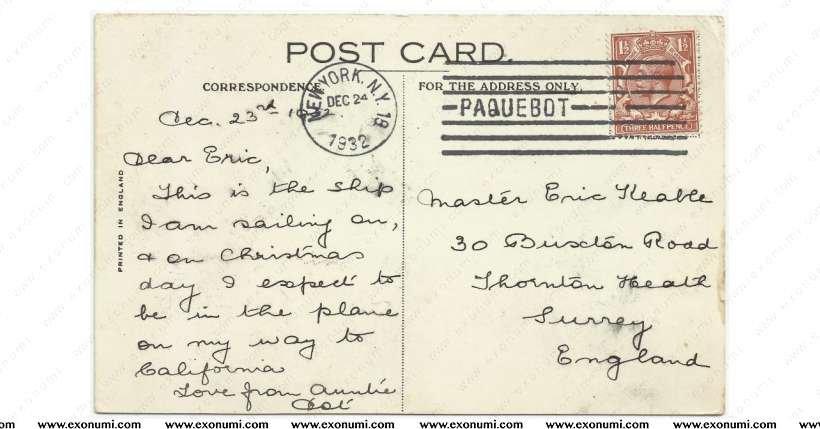 POST CARD.
CORRESPONDENCE.
FOR THE ADDRESS ONLY.
NEW YORK, N.Y. 18
DEC 24
1932
PAQUEBOT
1½ 1½
THREE HALFPENCE
PRINTED IN ENGLAND
Dec. 23rd 1932.
Dear Eric,
This is the ship
I am sailing on,
& on Christmas
day I expect to
be in the plane
on my way to
California
Love from Auntie
Master Eric Keable
30 Buxton Road
Thornton Heath
Surrey
England
www.exonumi.com www.exonumi.com www.exonumi.com www.exonumi.com www.exonumi.com